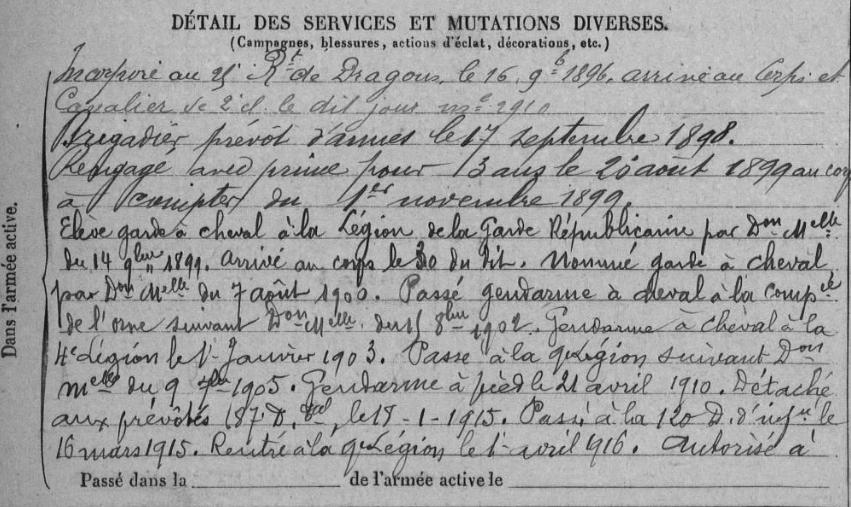 DÉTAIL DES SERVICES ET MUTATIONS DIVERSES.
(Campagnes, blessures, actions d'éclat, décorations, etc.)
Incorporé au Rt de Dragons, le 16 9b 1896, arrivé au Corps et
Cavalier de 2e cl. le dit jour no 2910
Brigadier prévôt d'armes le 17 septembre 1898.
Rengagé avec prime pour 3 ans le 20 août 1899 au corps
à compter du 1er novembre 1899.
Elève garde à cheval à la Légion de la Garde Républicaine par Don Melle
du 14 9bre 1899. Arrivé au corps le 30 du dit. Nommé garde à cheval
par Don Melle du 7 août 1900. Passé gendarme à cheval à la compie
de l'orne suivant Don Melle du 8bre 1902. Gendarme à cheval à la
4e Légion le 1r Janvier 1903. Passé à la 9e Légion suivant Don
melle du 9 1905. Gendarme à pied le 21 avril 1910. Détaché
aux prévôtés (87e D. tale, le 18-1-1915. Passé à la 120 D. d'infie le
16 mars 1915. Rentré à la 9e Légion le 1r avril 1916. Autorisé à
Passé dans la de l'armée active le
Dans l'armée active.